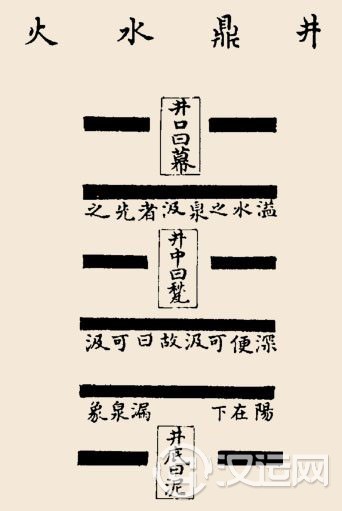 井鼎水火
井口曰幕
溢水之泉汲者先之
井中曰甃
深便可汲故曰可汲
陽在下 漏泉象
井底曰泥
汉运网